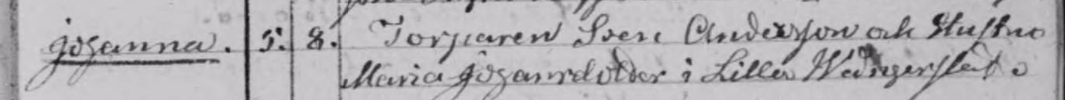 Johanna. 5. 8. Torparen Sven Andersson och Hustru
Maria Johansdotter i Lilla